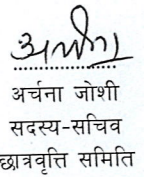 अर्चना जोशी
सदस्य-सचिव
छात्रवृत्ति समिति